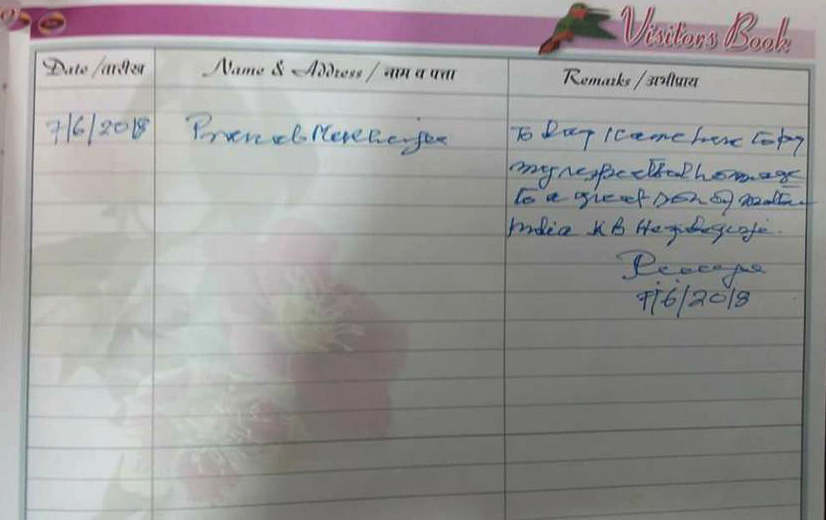 Visitors Book
Date /तारीख Name & Address / नाम व पत्ता Remarks / अभीप्राय
7/6/2018 Pranab Mukherjee To day I came here to pay
my respect and homage
to a great son of mother
India KB Hegdegwaji.
7/6/2018